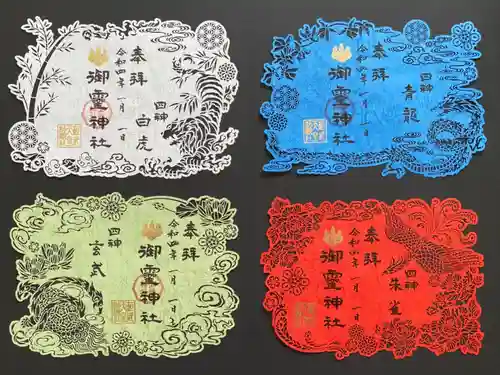 奉拝
四神
白虎
御霊神社
令和四年一月一日
奉拝
四神
青龍
御霊神社
令和四年一月一日
奉拝
四神
玄武
御霊神社
令和四年一月一日
奉拝
四神
朱雀
御霊神社
令和四年一月一日